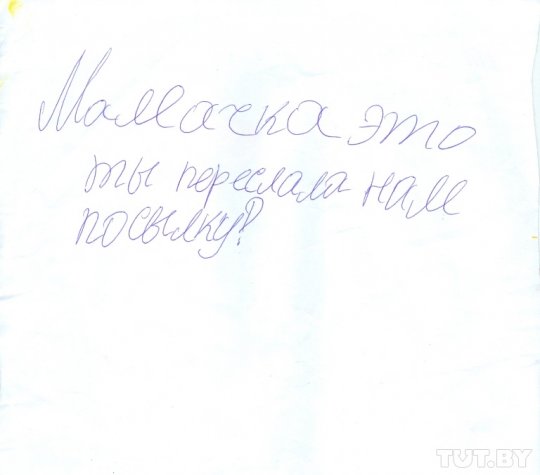 Мамачка это
ты переслала нам
посылку?
TUT.BY